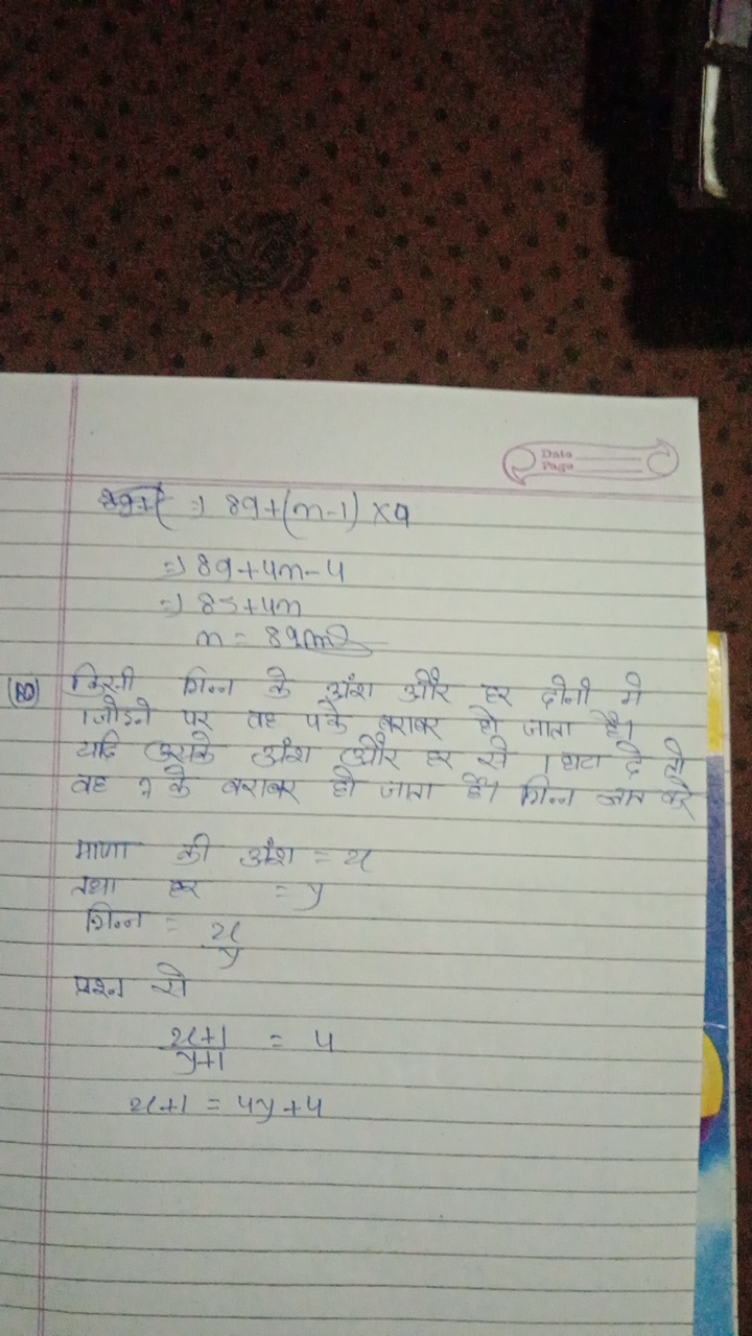 Date
Page
=) 89+(n-1)×4
=) 89+4n-4
=) 85+4n
n = 89
किसी भिन्न के अंश और हर दोनों में
1 जोड़ने पर वह 4 के बराबर हो जाता है।
यदि उसके अंश और हर से 1 घटा दे तो
वह 7 के बराबर हो जाता है। भिन्न ज्ञात करे
माना की अंश = x
तथा हर = y
भिन्न = x/y
प्रश्न से
x+1/y+1 = 4
x+1 = 4y+4